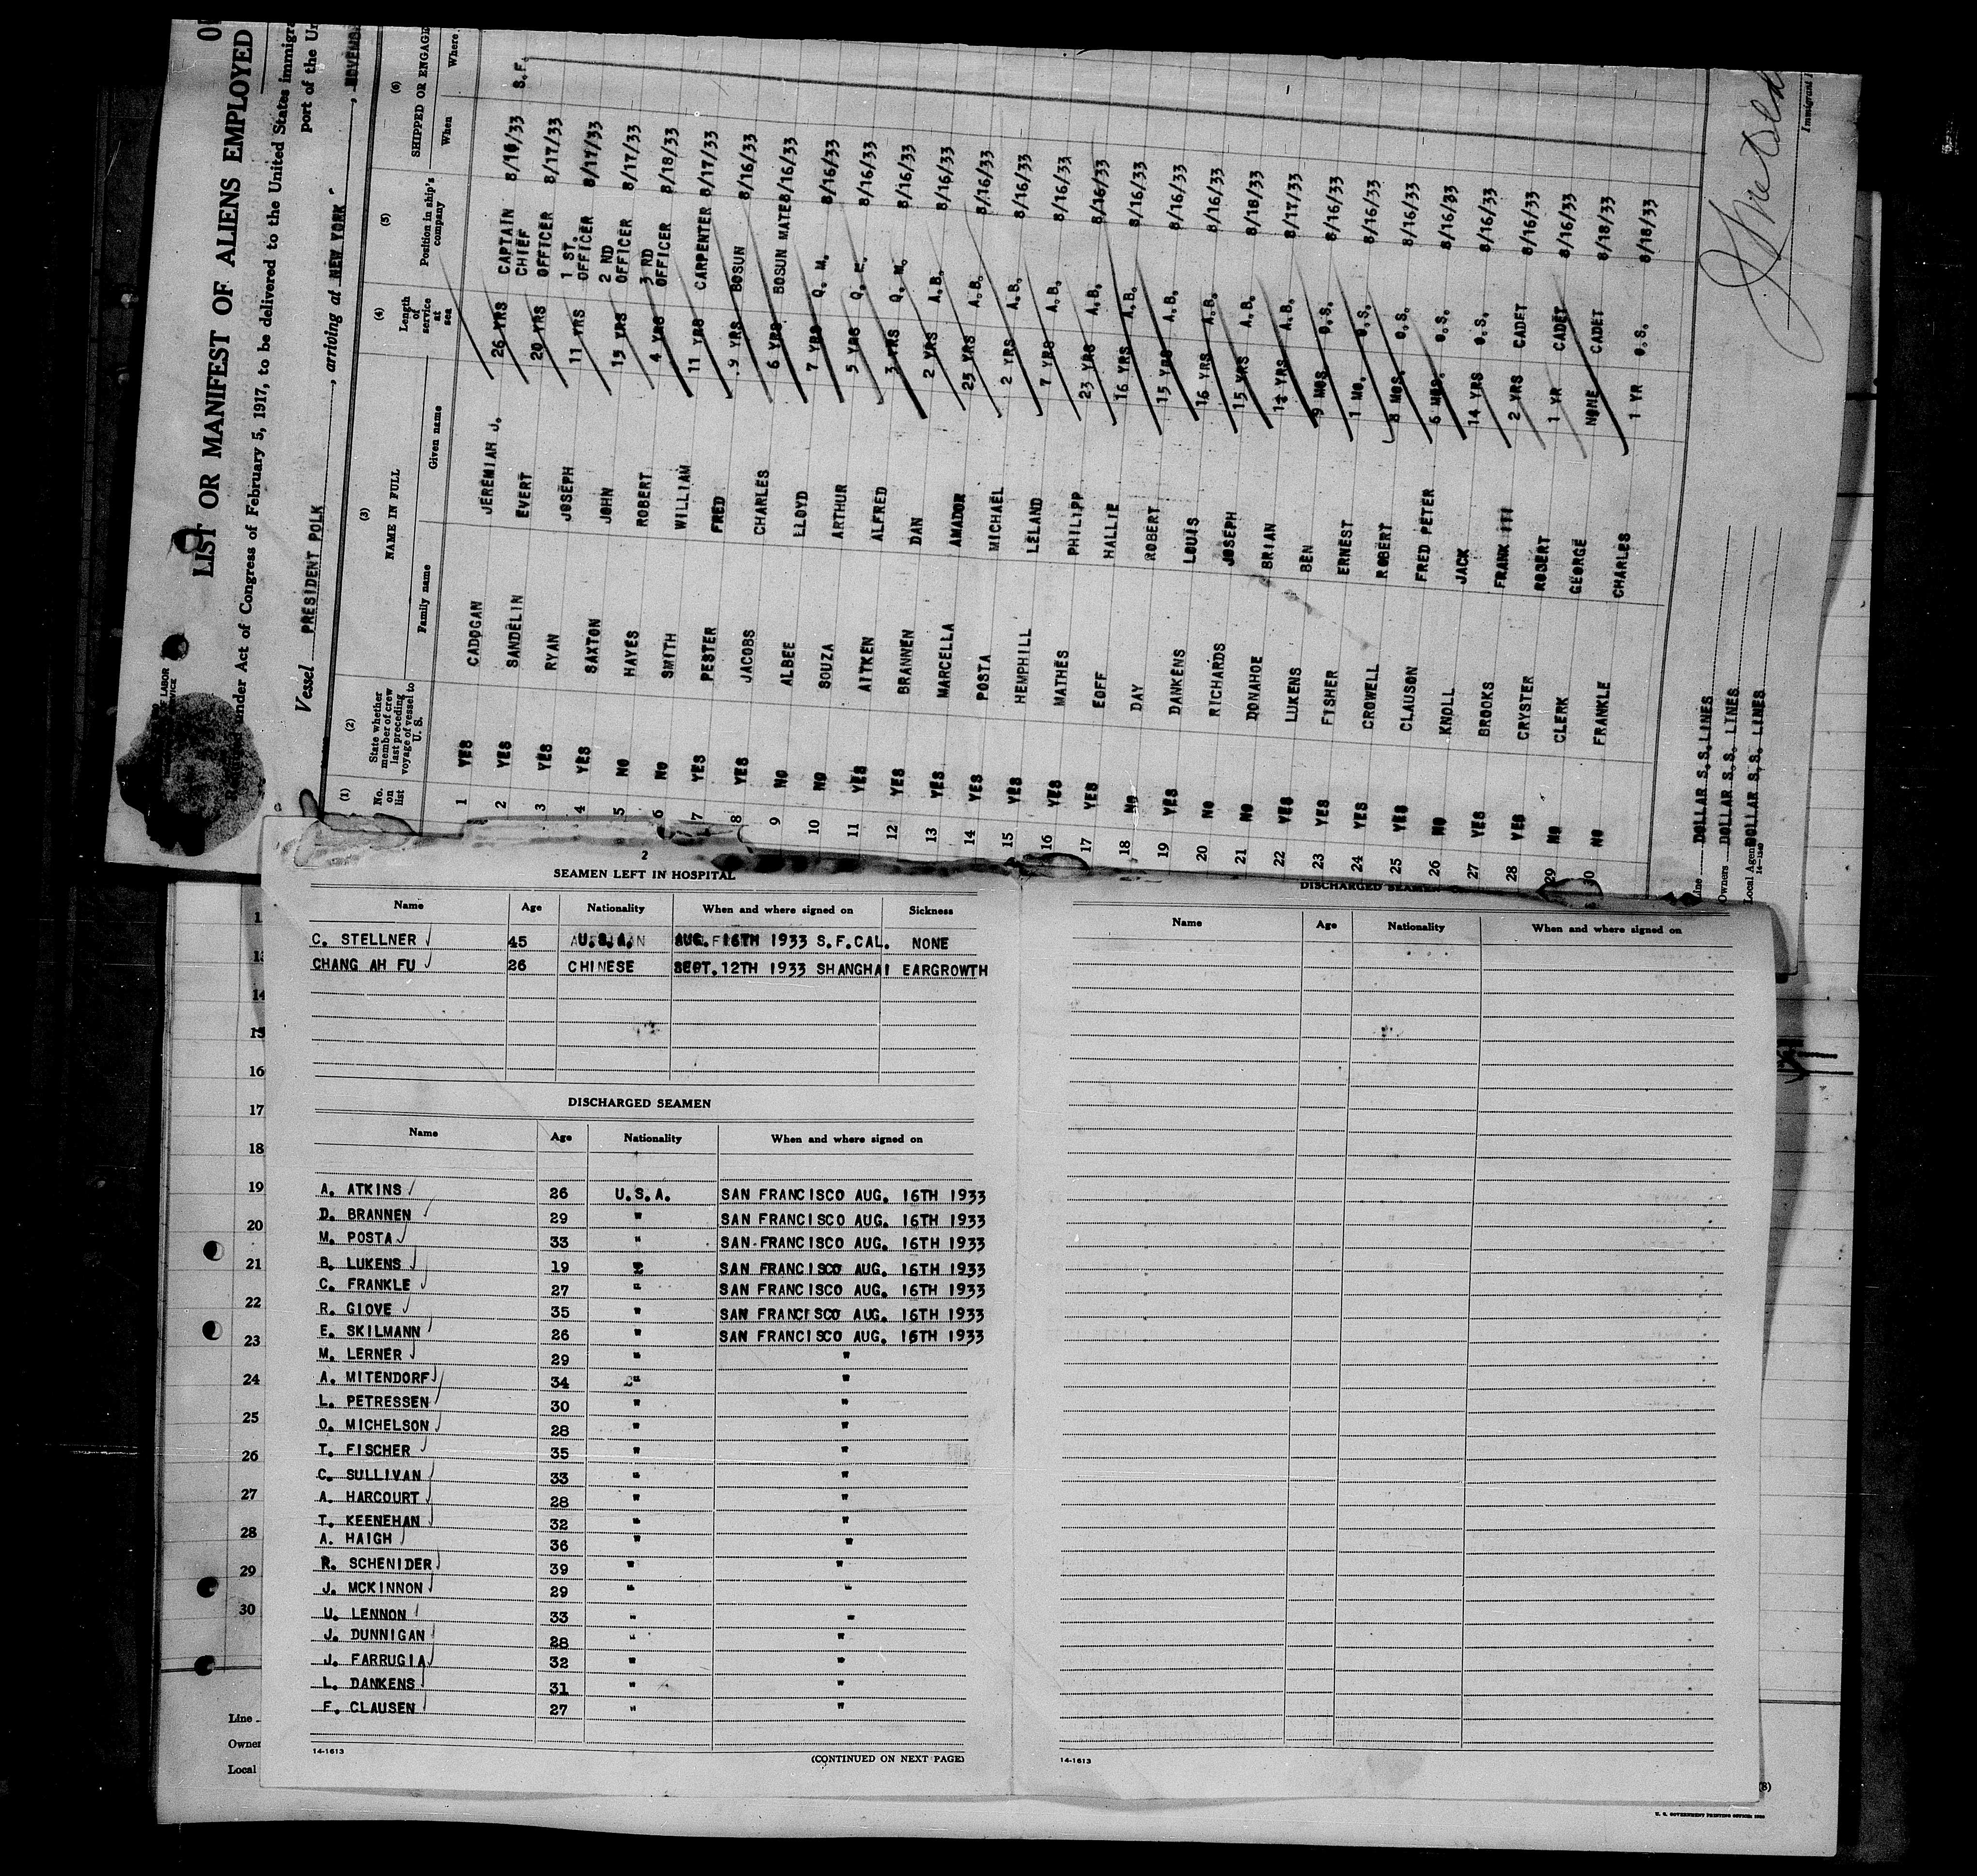 LIST OR MANIFEST OF ALIENS EMPLOYED
under Act of Congress of February 5, 1917, to be delivered to the United States immigra
port of the Un
Vessel PRESIDENT POLK , arriving at NEW YORK , NOVEMB
(1) (2) (3) (4) (5) (6)
No. on list
State whether member of crew last preceding voyage of vessel to U. S.
NAME IN FULL
Family name Given name
Length of service at sea
Position in ship's company
SHIPPED OR ENGAGE
When Where
1 YES CADOGAN JEREMIAH J. 26 YRS CAPTAIN 8/16/33 S.F.
2 YES SANDELIN EVERT 20 YRS CHIEF OFFICER 8/17/33
3 YES RYAN JOSEPH 11 YRS 1 ST. OFFICER 8/17/33
4 YES SAXTON JOHN 15 YRS 2 ND OFFICER 8/17/33
5 NO HAYES ROBERT 4 YRS 3 RD OFFICER 8/18/33
6 NO SMITH WILLIAM 11 YRS CARPENTER 8/17/33
7 YES PESTER FRED 9 YRS BOSUN 8/16/33
8 YES JACOBS CHARLES 6 YRS BOSUN MATE 8/16/33
9 NO ALBEE LLOYD 7 YRS Q. M. 8/16/33
10 NO SOUZA ARTHUR 5 YRS Q. M. 8/16/33
11 YES AITKEN ALFRED 3 YRS Q. M. 8/16/33
12 YES BRANNEN DAN 2 YRS A.B. 8/16/33
13 YES MARCELLA AMADOR 25 YRS A.B. 8/16/33
14 YES POSTA MICHAEL 2 YRS A.B. 8/16/33
15 YES HEMPHILL LELAND 7 YRS A.B. 8/16/33
16 YES MATHES PHILIPP 23 YRS A.B. 8/16/33
17 YES EOFF HALLIE 16 YRS A.B. 8/16/33
18 NO DAY ROBERT 15 YRS A.B. 8/16/33
19 YES DANKENS LOUIS 16 YRS A.B. 8/16/33
20 NO RICHARDS JOSEPH 15 YRS A.B. 8/18/33
21 NO DONAHOE BRIAN YRS A.B. 8/17/33
22 YES LUKENS BEN 9 MOS. O.S. 8/16/33
23 YES FISHER ERNEST 1 MO. O.S. 8/16/33
24 YES CROWELL ROBERT 8 MOS. O.S. 8/16/33
25 YES CLAUSON FRED PETER 6 MOS. O.S. 8/16/33
26 NO KNOLL JACK 14 YRS O.S. 8/16/33
27 YES BROOKS FRANK III 2 YRS CADET 8/16/33
28 YES CRYSTER ROBERT 1 YR CADET 8/16/33
29 NO CLERK GEORGE NONE CADET 8/18/33
30 NO FRANKLE CHARLES 1 YR O.S. 8/18/33
Line DOLLAR S.S. LINES
Owners DOLLAR S.S. LINES
Local Agent DOLLAR S.S. LINES
Immigrant
2
SEAMEN LEFT IN HOSPITAL
Name Age Nationality When and where signed on Sickness
C. STELLNER 45 U.S.A. AUG. 16TH 1933 S.F.CAL. NONE
CHANG AH FU 26 CHINESE SEPT.12TH 1933 SHANGHAI EARGROWTH
DISCHARGED SEAMEN
Name Age Nationality When and where signed on
A. ATKINS 26 U.S.A. SAN FRANCISCO AUG. 16TH 1933
D. BRANNEN 29 " SAN FRANCISCO AUG. 16TH 1933
M. POSTA 33 " SAN FRANCISCO AUG. 16TH 1933
B. LUKENS 19 " SAN FRANCISCO AUG. 16TH 1933
C. FRANKLE 27 " SAN FRANCISCO AUG. 16TH 1933
R. GIOVE 35 " SAN FRANCISCO AUG. 16TH 1933
E. SKILMANN 26 " SAN FRANCISCO AUG. 16TH 1933
M. LERNER 29 " "
A. MITENDORF 34 " "
L. PETRESSEN 30 " "
O. MICHELSON 28 " "
T. FISCHER 35 " "
C. SULLIVAN 33 " "
A. HARCOURT 28 " "
T. KEENEHAN 32 " "
A. HAIGH 36 " "
R. SCHENIDER 39 " "
J. MCKINNON 29 " "
U. LENNON 33 " "
J. DUNNIGAN 28 " "
J. FARRUGIA 32 " "
L. DANKENS 31 " "
F. CLAUSEN 27 " "
14-1613 (CONTINUED ON NEXT PAGE)
DISCHARGED SEAMEN
Name Age Nationality When and where signed on
14-1613
14
15
16
17
18
19
20
21
22
23
24
25
26
27
28
29
30
Line
Owner
Local
(B)
U. S. GOVERNMENT PRINTING OFFICE